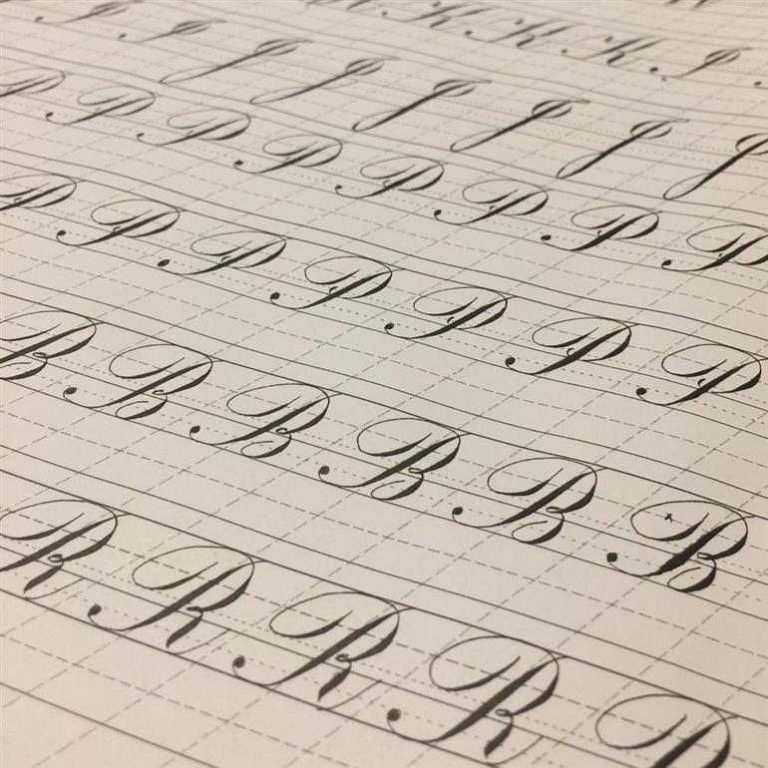 K K K K I
I I J J J J J J
P P P P P P P P
P P P P P P P
B B B B B B
R R R R